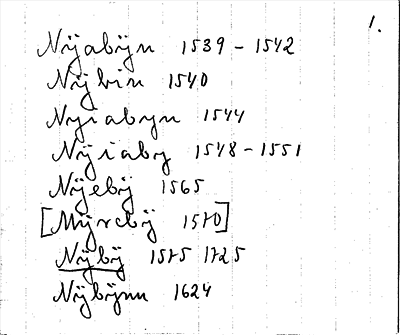 1.
Nÿabÿn 1539 - 1542
Nÿbin 1540
Nyiabyn 1544
Nÿiaby 1548 - 1551
Nÿebÿ 1565
[Mÿrebÿ 1570]
Nÿbÿ 1575 1725
Nÿbÿnn 1624